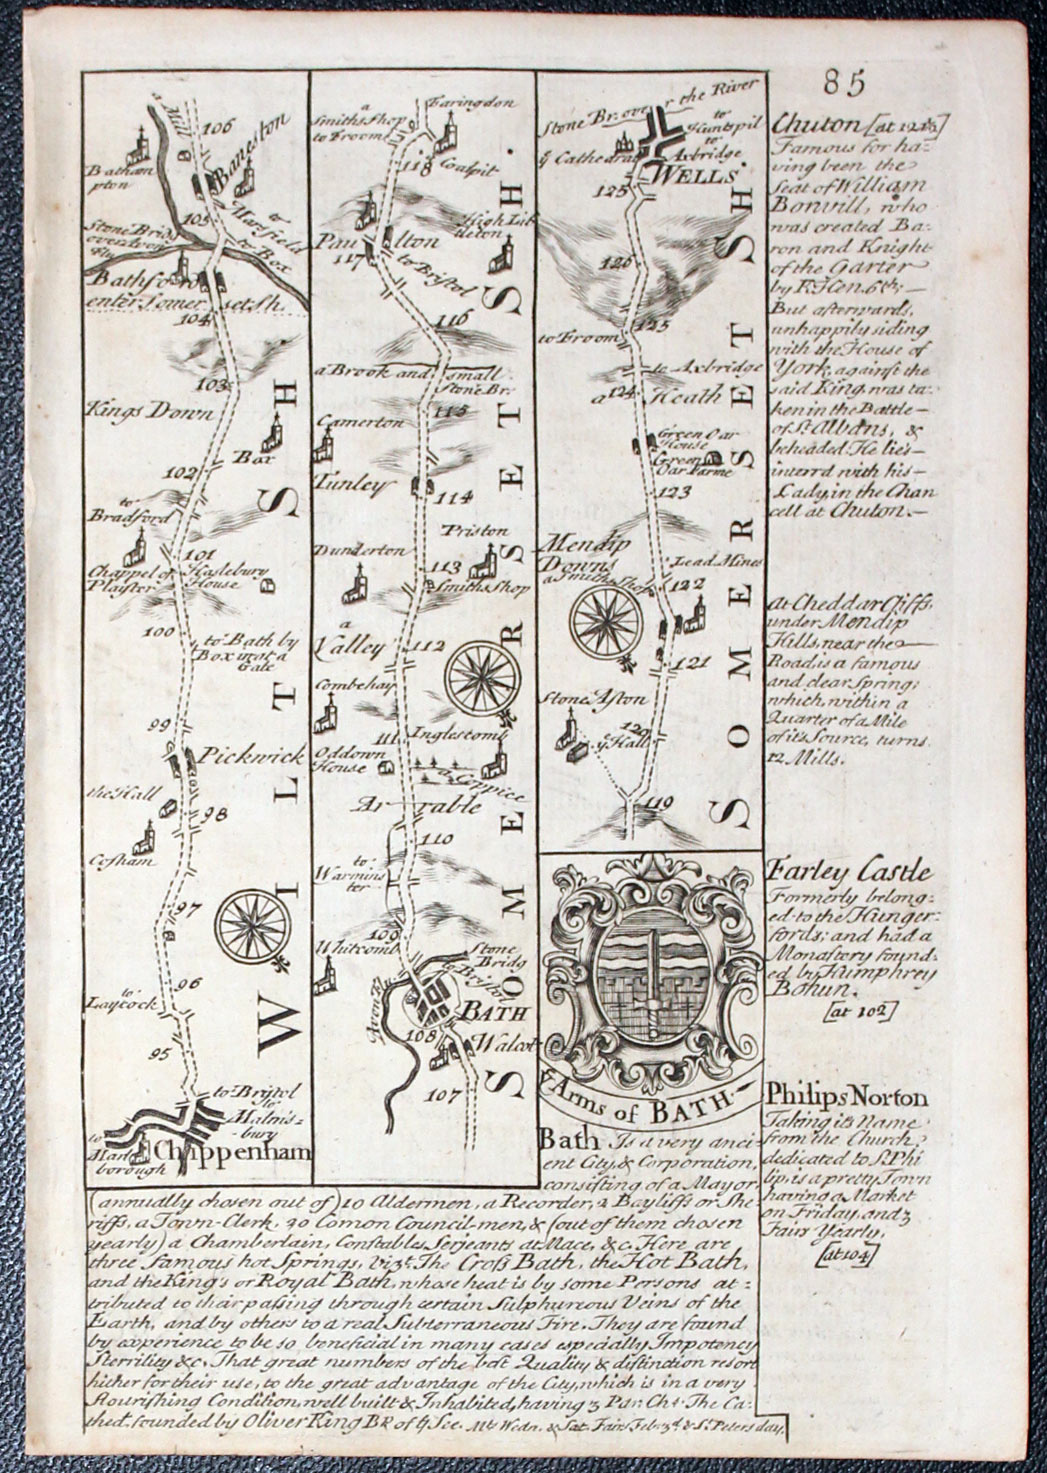 85
a Mill
106
Baneston
Batham
pton
to
Marsfield
105
Stone Bridg
over Avon
flu
to Box
Bathford
enter Somersetsh.
104
103
Kings Down
Box
102
to
Bradford
101
Chappel of
Plaister
Haslebury
House
100
to Bath by
Box in at a
Gate
99
Pickwick
the Hall
98
Cosham
97
96
to
Laycock
95
to Bristol
to
Malms=
bury
to
Marl
borough
Chippenham
WILTSH
a
Smiths Shop
to Froom
Faringdon
118
Coalpit
High Lit
tleton
Paulton
117
to Bristol
116
a Brook and small
Stone Br:
115
Camerton
Tunley
114
Priston
Dunderton
113
Smiths Shop
a
Valley
112
Combehay
111
Inglescomb
Oddown
House
a Coppice
Arrable
110
to
Warmins
ter
109
Whitcomb
Stone
Bridg
to Bristol
Avon R
BATH
108
Walcot
107
SOMERSETSH.
Stone Br. over the River
to
Huntspil
to
Axbridge
y Cathedral
WELLS.
125
126
125
to Froom
to Axbridge
124
a Heath
Green Oar
House
Green
Oar Farme
123
Mendip
Downs
a Smiths Shop
Lead Mines
122
121
Stone Aston
120
y Hall
119
SOMERSETSH.
y Arms of BATH
Chuton [at 121½]
Famous for ha=
ving been the
Seat of William
Bonvill, who
was created Ba=
ron and Knight
of the Garter
by K. Hen. 6th;
But afterwards,
unhappily siding
with the House of
York, against the
said King was ta=
ken in the Battle
of St. Albans, &
beheaded. He lies
interrd with his
Lady in the Chan
cell at Chuton.
At Cheddar Cliffs,
under Mendip
Hills, near the
Road, is a famous
and clear Spring;
which, within a
Quarter of a Mile
of its Source, turns
12 Mills.
Farley Castle
Formerly belong:
ed to the Hunger:
fords; and had a
Monastery found:
ed by Humphrey
Bohun.
[at 102]
Philips Norton
Taking its Name
from the Church
dedicated to St. Phi
lip, is a pretty Town
having a Market
on Friday, and 3
Fairs Yearly.
[at 104]
Bath Is a very anci=
ent City, & Corporation,
consisting of a Mayor
(annually chosen out of) 10 Aldermen, a Recorder, 2 Bayliffs or She
riffs, a Town-Clerk, 20 Comon Council-men, & (out of them chosen
yearly) a Chamberlain, Constables Serjeants at Mace, &c. Here are
three famous hot Springs, vizt. The Cross Bath, the Hot Bath,
and the King's or Royal Bath, whose heat is by some Persons at=
tributed to their passing through certain Sulphureous Veins of the
Earth, and by others to a real Subterraneous Fire. They are found
by experience to be so beneficial in many cases especially Impotency
Sterrility &c. That great numbers of the best Quality & distinction resort
hither for their use, to the great advantage of the City, which is in a very
flourishing Condition, well built & Inhabited, having 3 Par. Chs. The Ca=
thed. founded by Oliver King Bp. of y See. Mts Wedn. & Sat. Fairs Feb. 3d & St. Peters day.